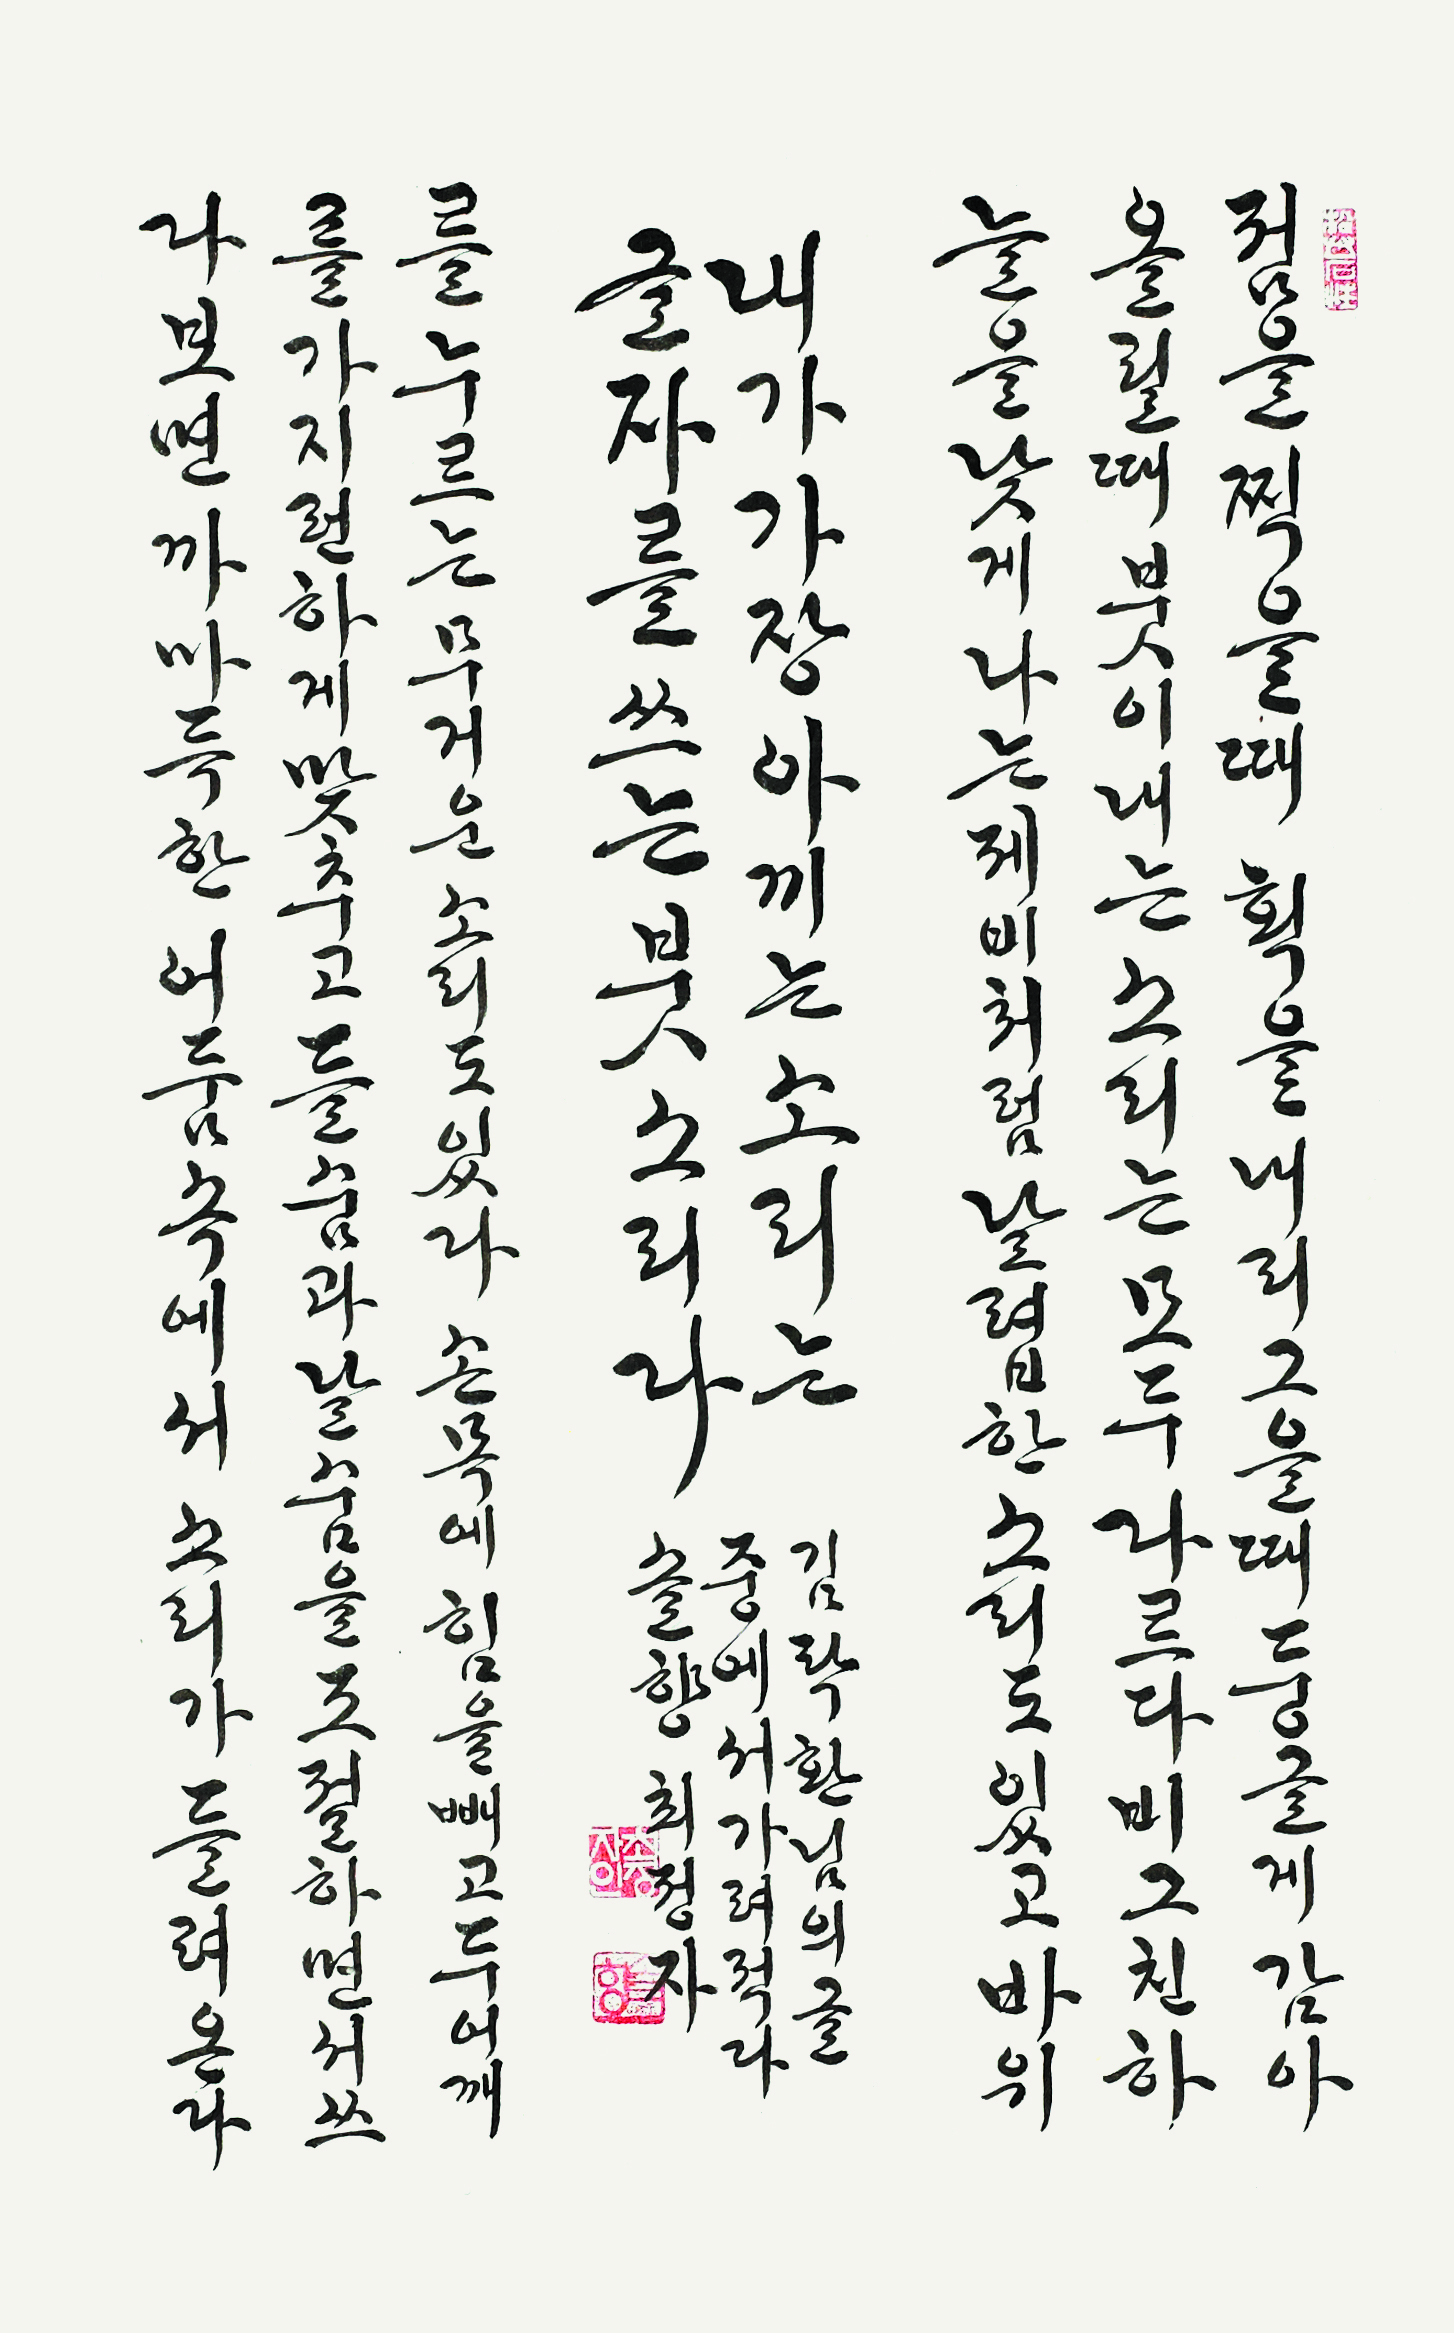 점을 찍을때 획을 내리그을때 둥글게 감아
올릴때 붓이 내는 소리는 모두 다르다 비그친 하
늘을 낮게 나는 제비처럼 날렵한 소리도 있고 바위
내가 가장 아끼는 소리는
글자를 쓰는 붓소리다
김탁환님의 글
중에서 가려적다
솔향 최정자
를 누르는 무거운 소리도 있다 손목에 힘을 빼고 두어깨
를 가지런하게 맞추고 들숨과 날숨을 조절하면서 쓰
다보면 까마득한 어둠속에서 소리가 들려온다